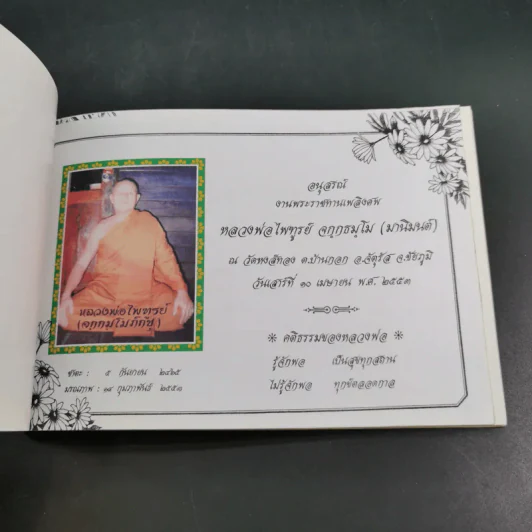 อนุสรณ์
งานพระราชทานเพลิงศพ
หลวงพ่อไพฑูรย์ จกฺกธมฺโม (มานิมนต์)
ณ วัดหงส์ทอง ต.บ้านกอก อ.จัตุรัส จ.ชัยภูมิ
วันเสาร์ที่ ๑๐ เมษายน พ.ศ. ๒๕๕๓
คติธรรมของหลวงพ่อ
รู้จักพอ เป็นสุขทุกสถาน
ไม่รู้จักพอ ทุกข์ตลอดกาล
หลวงพ่อไพฑูรย์
ชาตะ : ๕ กันยายน ๒๔๖๕
มรณภาพ : ๑๙ กุมภาพันธ์ ๒๕๕๓